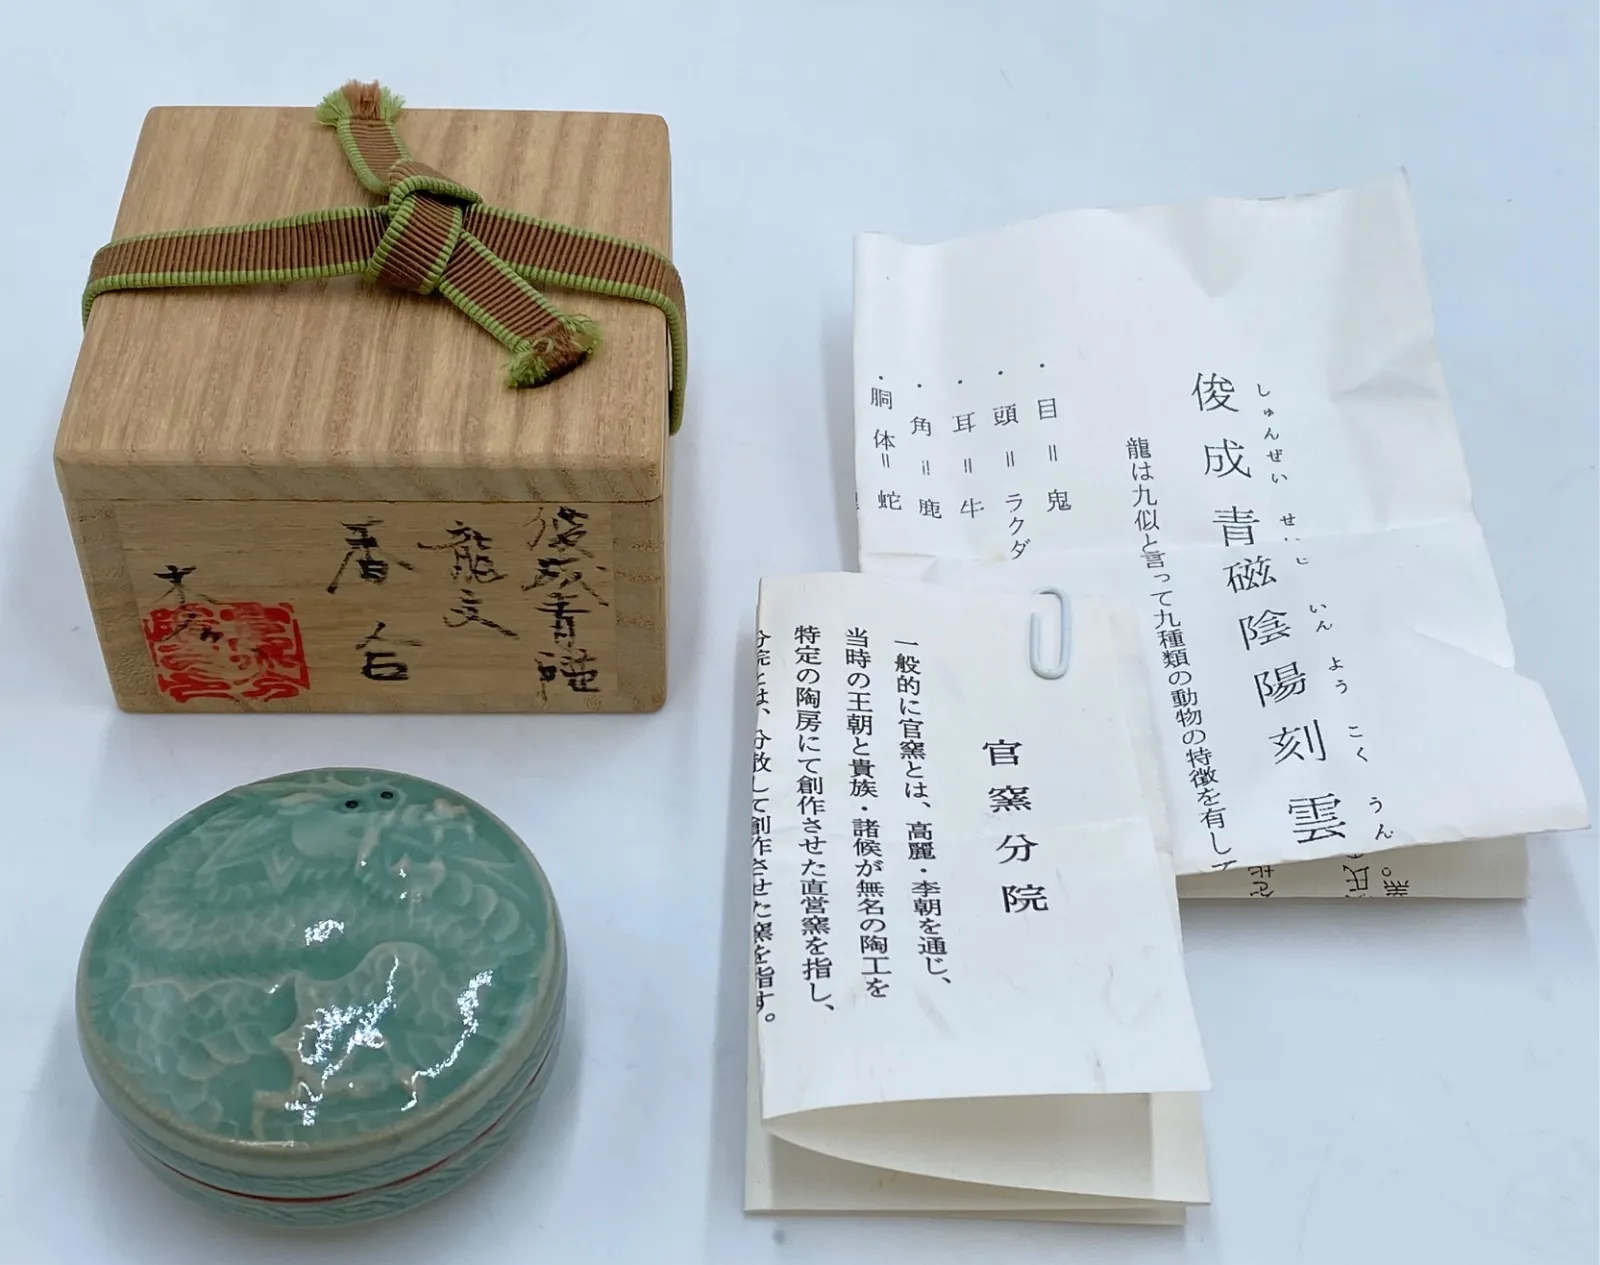 俊成青磁
龍文
香合
俊成青磁陰陽刻雲
しゅんぜい せいじ いんようこくうん
龍は九似と言って九種類の動物の特徴を有して
・目＝鬼
・頭＝ラクダ
・耳＝牛
・角＝鹿
・胴体＝蛇
官窯分院
一般的に官窯とは、高麗・李朝を通じ、
当時の王朝と貴族・諸候が無名の陶工を
特定の陶房にて創作させた直営窯を指し、
分院とは、分散して創作させた窯を指す。